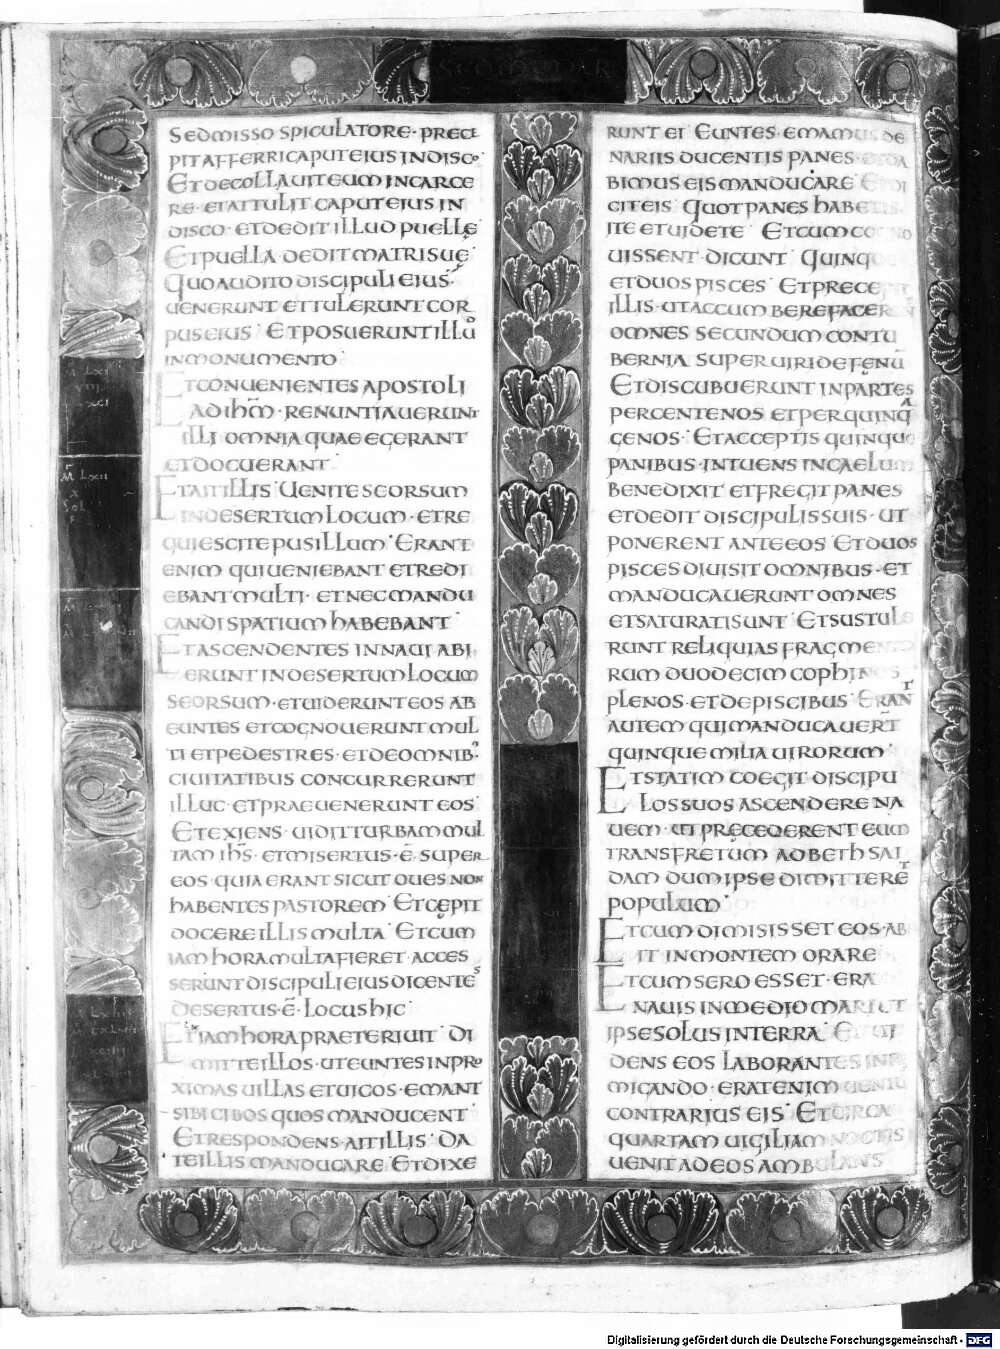 SED MISSO SPICULATORE · PRECE
PIT AFFERRI CAPUT EIUS IN DISCO ·
ET DECOLLAVIT EUM IN CARCE
RE · ET ATTULIT CAPUT EIUS IN
DISCO · ET DEDIT ILLUD PUELLĘ ·
ET PUELLA DEDIT MATRI SUĘ ·
QUO AUDITO DISCIPULI EIUS ·
UENERUNT ET TULERUNT COR
PUS EIUS · ET POSUERUNT ILLŪ
IN MONUMENTO ·
ET CONUENIENTES APOSTOLI
AD IHM̄ · RENUNTIAUERUNT
ILLI OMNIA QUAE EGERANT
ET DOCUERANT ·
ET AIT ILLIS · UENITE SEORSUM
IN DESERTUM LOCUM · ET RE
QUIESCITE PUSILLUM · ERANT
ENIM QUI UENIEBANT ET REDI
EBANT MULTI · ET NEC MANDU
CANDI SPATIUM HABEBANT ·
ET ASCENDENTES IN NAUI ABI
ERUNT IN DESERTUM LOCUM
SEORSUM · ET UIDERUNT EOS AB
EUNTES ET COGNOUERUNT MUL
TI ET PEDESTRES · ET DE OMNIB·
CIUITATIBUS CONCURRERUNT
ILLUC · ET PRAEUENERUNT EOS ·
ET EXIENS · UIDIT TURBAM MUL
TAM IHS̄ · ET MISERTUS · Ē · SUPER
EOS · QUIA ERANT SICUT OUES NON
HABENTES PASTOREM · ET CĘPIT
DOCERE ILLIS MULTA · ET CUM
IAM HORA MULTA FIERET · ACCES
SERUNT DISCIPULI EIUS DICENTES
DESERTUS · Ē · LOCUS HIC ·
ET IAM HORA PRAETERIUIT · DI
MITTE ILLOS · UT EUNTES IN PRO
XIMAS UILLAS ET UICOS · EMANT
SIBI CIBOS QUOS MANDUCENT ·
ET RESPONDENS · AIT ILLIS · DA
TE ILLIS MANDUCARE · ET DIXE
RUNT EI · EUNTES · EMAMUS DE
NARIIS DUCENTIS PANES · ET DA
BIMUS EIS MANDUCARE · ET DI
CIT EIS · QUOT PANES HABETIS
ITE ET UIDETE · ET CUM COGNO
UISSENT · DICUNT · QUINQUE
ET DUOS PISCES · ET PRECEPIT
ILLIS · UT ACCUMBERE FACERENT
OMNES SECUNDUM CONTU
BERNIA SUPER UIRIDE FENŪ
ET DISCUBUERUNT IN PARTES
PER CENTENOS ET PER QUINQUA
GENOS · ET ACCEPTIS QUINQUE
PANIBUS · INTUENS IN CAELUM
BENEDIXIT ET FREGIT PANES
ET DEDIT DISCIPULIS SUIS · UT
PONERENT ANTE EOS · ET DUOS
PISCES DIUISIT OMNIBUS · ET
MANDUCAUERUNT OMNES
ET SATURATI SUNT · ET SUSTULE
RUNT RELIQUIAS FRAGMENTO
RUM DUODECIM COPHINOS
PLENOS · ET DE PISCIBUS · ERANT
AUTEM QUI MANDUCAUERT̄
QUINQUE MILIA UIRORUM ·
ET STATIM COEGIT DISCIPU
LOS SUOS ASCENDERE NA
UEM · UT PRĘCEDERENT EUM
TRANS FRETUM AD BETHSAI
DAM DUM IPSE DIMITTERET
POPULUM ·
ET CUM DIMISISSET EOS · AB
IIT IN MONTEM ORARE
ET CUM SERO ESSET · ERAT
NAUIS IN MEDIO MARI ET
IPSE SOLUS IN TERRA · ET UI
DENS EOS LABORANTES IN RE
MIGANDO · ERAT ENIM UENTUS
CONTRARIUS EIS · ET CIRCA
QUARTAM UIGILIAM NOCTIS
UENIT AD EOS AMBULANS
Digitalisierung gefördert durch die Deutsche Forschungsgemeinschaft - DFG